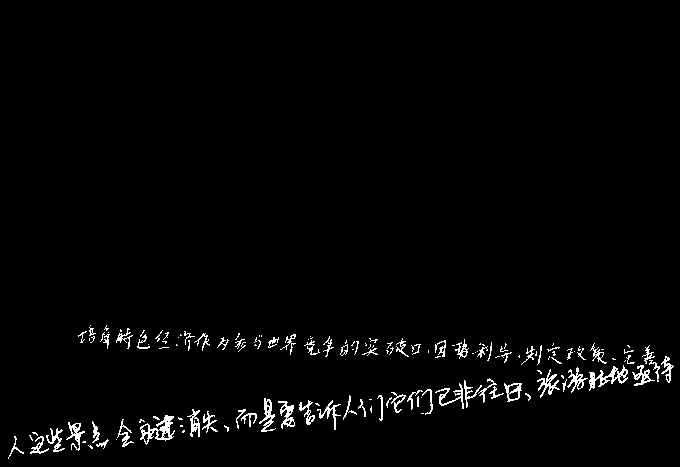 培育特色经济作为参与世界竞争的突破口,因势利导,制定政策、完善
人这些景点会消失、而是要告诉人们它们已非往日、旅游胜地亟待